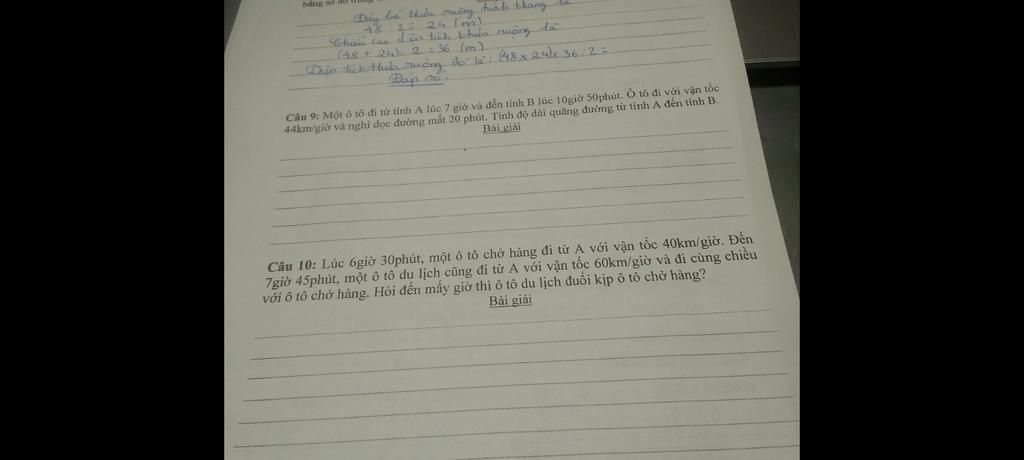 Đáy bé thửa ruộng hình thang là
48 : 2 = 24 (m)
Chiều cao diện tích thửa ruộng là
(48 + 24) : 2 = 36 (m)
Diện tích thửa ruộng đó là : (48 x 24) x 36 : 2 =
Đáp số :
Câu 9: Một ô tô đi từ tỉnh A lúc 7 giờ và đến tỉnh B lúc 10giờ 50phút. Ô tô đi với vận tốc
44km/giờ và nghỉ dọc đường mất 20 phút. Tính độ dài quãng đường từ tỉnh A đến tỉnh B.
Bài giải
Câu 10: Lúc 6giờ 30phút, một ô tô chở hàng đi từ A với vận tốc 40km/giờ. Đến
7giờ 45phút, một ô tô du lịch cũng đi từ A với vận tốc 60km/giờ và đi cùng chiều
với ô tô chở hàng. Hỏi đến mấy giờ thì ô tô du lịch đuổi kịp ô tô chở hàng?
Bài giải